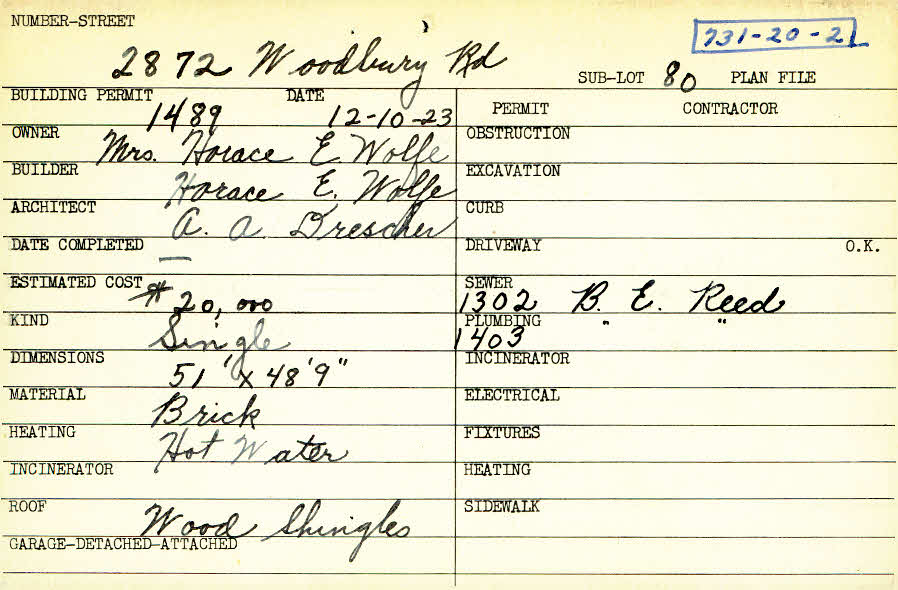 NUMBER-STREET
731-20-21
2872 Woodbury Rd
SUB-LOT 80 PLAN FILE
BUILDING PERMIT DATE
1489 12-10-23
PERMIT CONTRACTOR
OWNER Mrs. Horace E. Wolfe
OBSTRUCTION
BUILDER Horace E. Wolfe
EXCAVATION
ARCHITECT A. A. Drescher
CURB
DATE COMPLETED —
DRIVEWAY O.K.
ESTIMATED COST $20,000
SEWER
1302 B. E. Reed
KIND Single
PLUMBING " "
1403
DIMENSIONS 51' x 48'9"
INCINERATOR
MATERIAL Brick
ELECTRICAL
HEATING Hot Water
FIXTURES
INCINERATOR
HEATING
ROOF Wood Shingles
SIDEWALK
GARAGE-DETACHED-ATTACHED